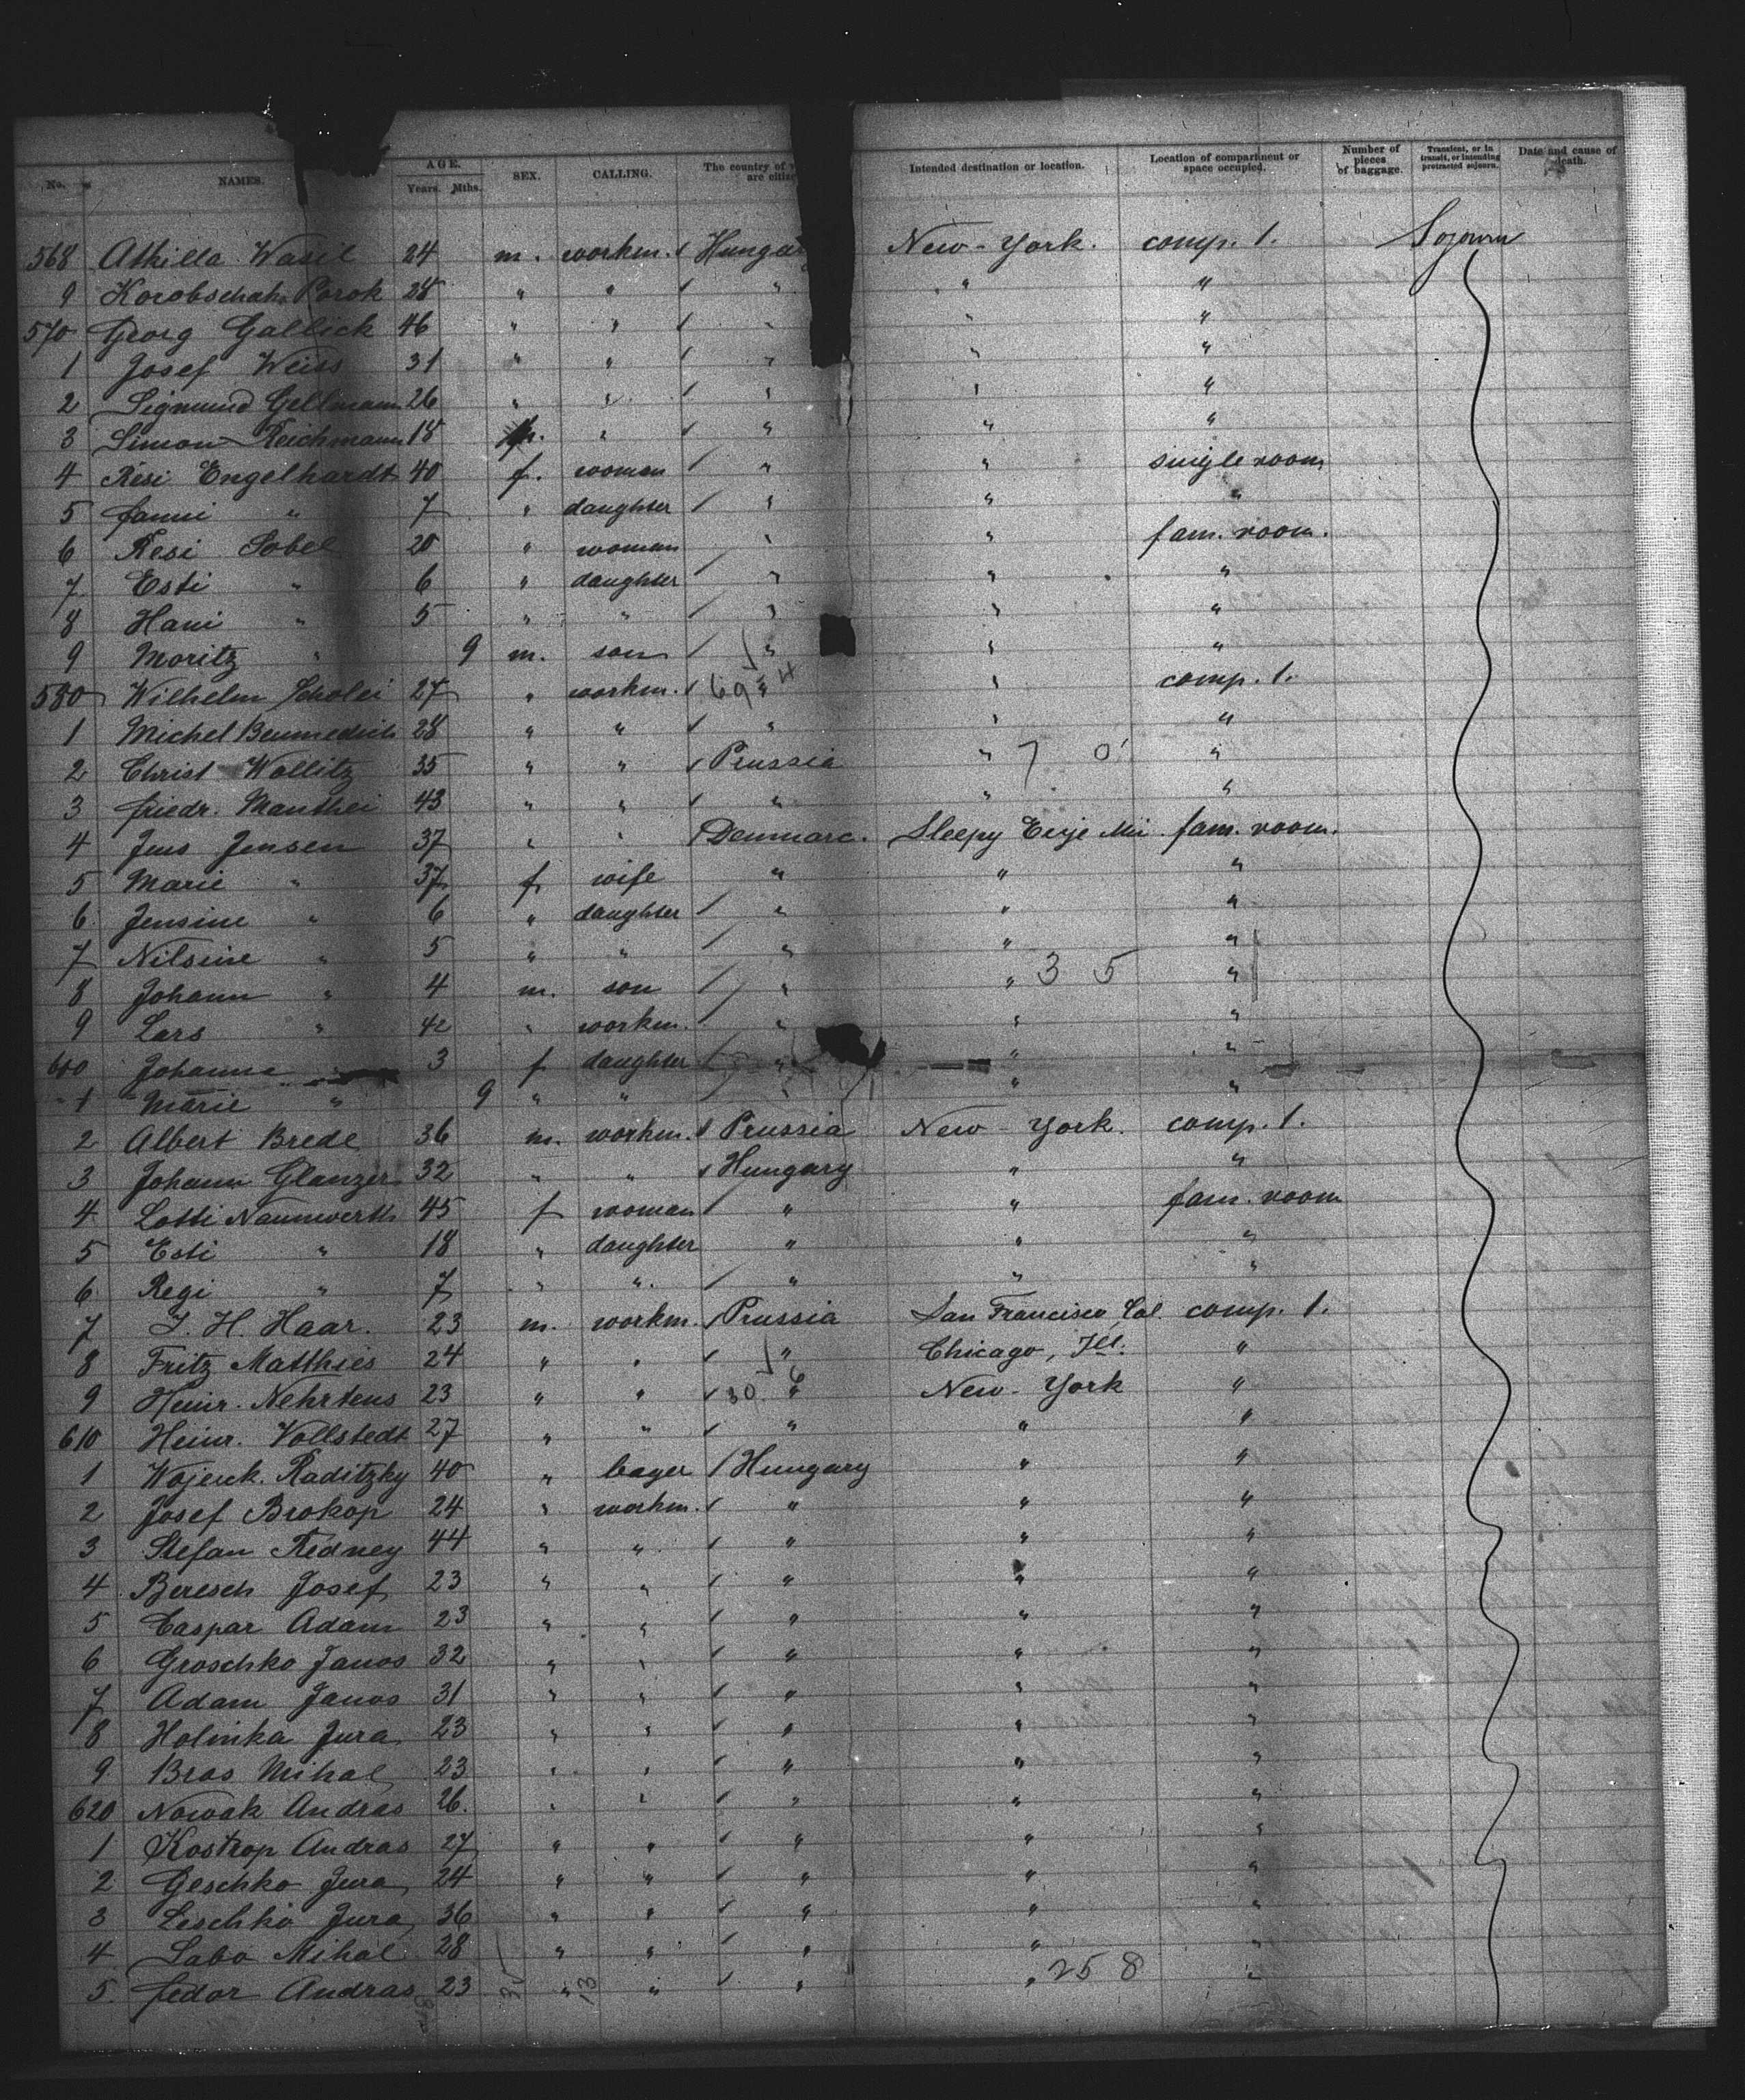 No. NAMES. AGE. Years. Mths. SEX. CALLING. The country of are citize Intended destination or location. Location of compartment or space occupied. Number of pieces of baggage. Transient, or in transit, or intending protracted sojourn. Date and cause of death.
568 Athilla Wasil 24 m. workm. Hungar New-York. comp. 1. Sojourn
9 Korobschak Porok 28 " " " " "
570 Georg Gallick 46 " " " " "
1 Josef Weiss 31 " " " " "
2 Sigmund Gellmann 26 " " " " "
3 Simon Reichmann 18 " " " "
4 Resi Engelhardt 40 f. woman " " single room
5 Fanni " 7 " daughter " " "
6 Resi Sobel 20 " woman " " fam. room.
7 Esti " 6 " daughter " " "
8 Hani " 5 " " " " "
9 Moritz " 9 m. son " " "
580 Wilhelm Scholei 27 " workm. 69 4 " " comp. 1.
1 Michel 28 " " " " "
2 Christ Wollitz 35 " " Prussia " 7 0 "
3 Friedr. Manthei 43 " " " " "
4 Jens Jensen 37 " " Denmarc. Sleepy Eije Min. fam. room.
5 Marie " 37 f wife " " "
6 Jensine " 6 " daughter " " "
7 Nilsine " 5 " " " " "
8 Johann " 4 m. son " " 3 5 "
9 Lars " 42 " workm. " " "
600 Johanne " 3 f daughter " " "
1 Marie " 9 " " " " "
2 Albert Brede 36 m. workm. Prussia New-York. comp. 1.
3 Johann Glanzer 32 " " Hungary " "
4 Lotti Naumwerth 45 f woman " " fam. room
5 Esti " 18 " daughter " " "
6 Regi " 7 " " " " "
7 J. H. Haar. 23 m. workm. Prussia San Francisco, Cal. comp. 1.
8 Fritz Matthies 24 " " " Chicago, Ill. "
9 Heinr. Nehrtens 23 " " 30. 6 " New-York "
610 Heinr. Vollstedt 27 " " " " "
1 Wojeick. Raditzky 40 " Hungary " "
2 Josef Brokop 24 " workm. " " "
3 Stefan Redney 44 " " " " "
4 Beresch Josef 23 " " " " "
5 Caspar Adam 23 " " " " "
6 Groschko Janos 32 " " " " "
7 Adam Janos 31 " " " " "
8 Holinka Jura 23 " " " " "
9 Bras Mihal 23 " " " " "
620 Nowak Andras 26. " " " " "
1 Kostrop Andras 27 " " " " "
2 Geschko Jura 24 " " " " "
3 Leschko Jura 36 " " " " "
4 Labo Mihal 28 " " " " "
5. Fedor Andras 23 35 " 13 " " " 258 "